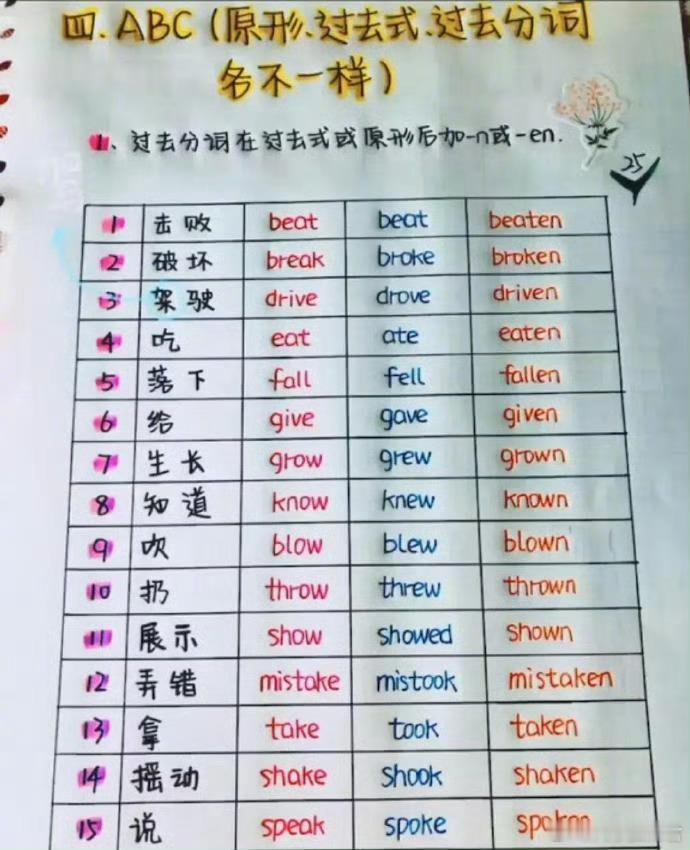 四.ABC(原形、过去式、过去分词
各不一样)
1、过去分词在过去式或原形后加-n或-en.
25
1 击败 beat beat beaten
2 破坏 break broke broken
3 驾驶 drive drove driven
4 吃 eat ate eaten
5 落下 fall fell fallen
6 给 give gave given
7 生长 grow grew grown
8 知道 know knew known
9 吹 blow blew blown
10 扔 throw threw thrown
11 展示 show showed shown
12 弄错 mistake mistook mistaken
13 拿 take took taken
14 摇动 shake shook shaken
15 说 speak spoke